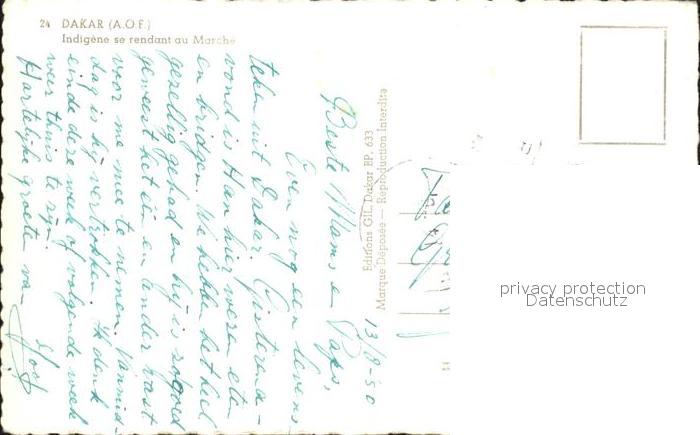 24 DAKAR (A.O.F.)
Indigène se rendant au Marché
13/8-50
Beste Mams en Paps,
Even nog een levens
teken uit Dakar. Gisterena-
vond is Han hier wezen eten
en bridgen. We hebben het heel
gezellig gehad en hij is zo goed
geweest het een en ander vast
voor me mee te nemen. Vanmid-
dag is hij vertrokken. Ik denk
einde deze week of volgende week
weer thuis te zijn.
Hartelijke groeten van
Joost
Editions GIL, Dakar BP. 633
Marque Déposée — Reproduction Interdite
privacy protection
Datenschutz